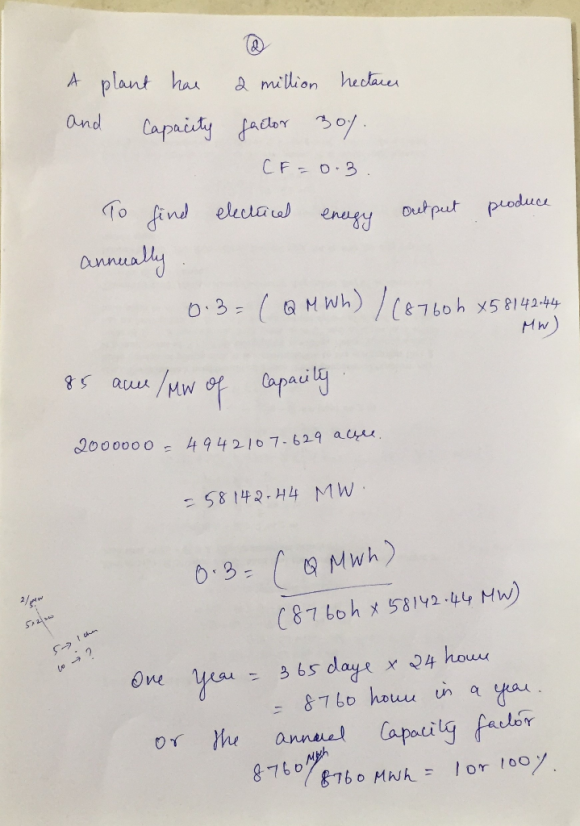 2
A plant has 2 million hectares
and Capacity factor 30%.
CF = 0.3.
To find electrical energy output produce
annually.
0.3 = ( Q MWh) / (8760h × 58142.44
MW)
85 acre/MW of Capacity.
2000000 = 4942107.629 acre.
= 58142.44 MW.
0.3 = ( Q MWh)
(8760h × 58142.44 MW)
One year = 365 days × 24 hours
= 8760 hours in a year.
or the annual Capacity factor
8760 MWh/8760 MWh = 1 or 100%.